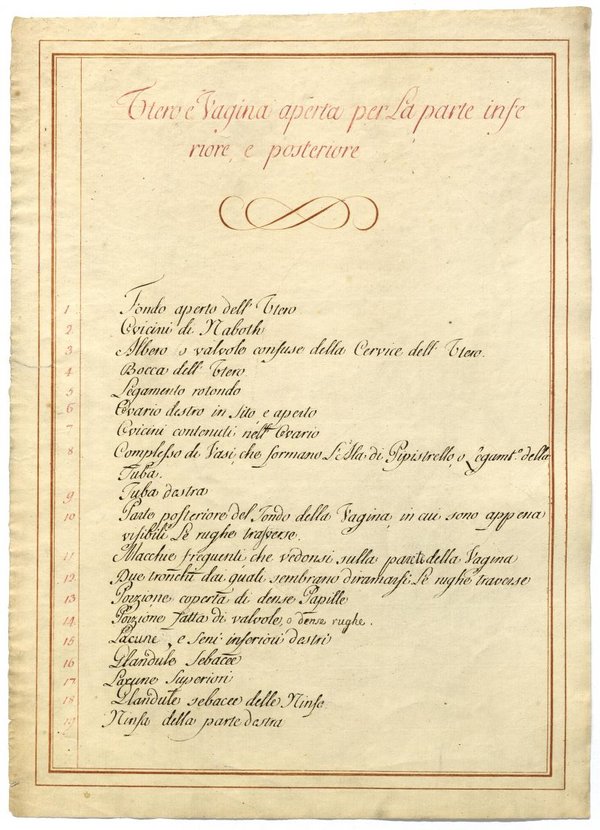 Utero e Vagina aperta per La parte infe
riore, e posteriore
1 Fondo aperto dell' Utero
2 Ovicini di Naboth
3 Albero o valvole confuse della Cervice dell' Utero.
4 Bocca dell' Utero
5 Legamento rotondo
6 Ovario destro in sito e aperto
7 Ovicini contenuti nell' Ovario
8 Complesso di Vasi, che formano L'Ala di Pipistrello, o Legamt.º della
Tuba.
9 Tuba destra
10 Parte posteriore del Fondo della Vagina, in cui sono appena
visibili Le rughe trasverse.
11 Macchie frequenti, che vedonsi sulla parte della Vagina
12 Due tronchi dai quali sembrano diramarsi Le rughe traverse
13 Porzione coperta di dense Papille
14 Porzione fatta di valvole, o dense rughe.
15 Lacune, e Seni inferiori destri
16 Glandule Sebacee
17 Lacune Superiori
18 Glandule sebacee delle Ninfe
19 Ninfa della parte destra